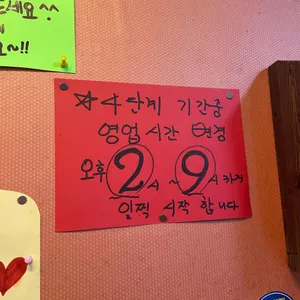 세요^^
~!!
☆4단계 기간중
영업시간 변경
오후 2시~9시까지
일찍 시작 합니다